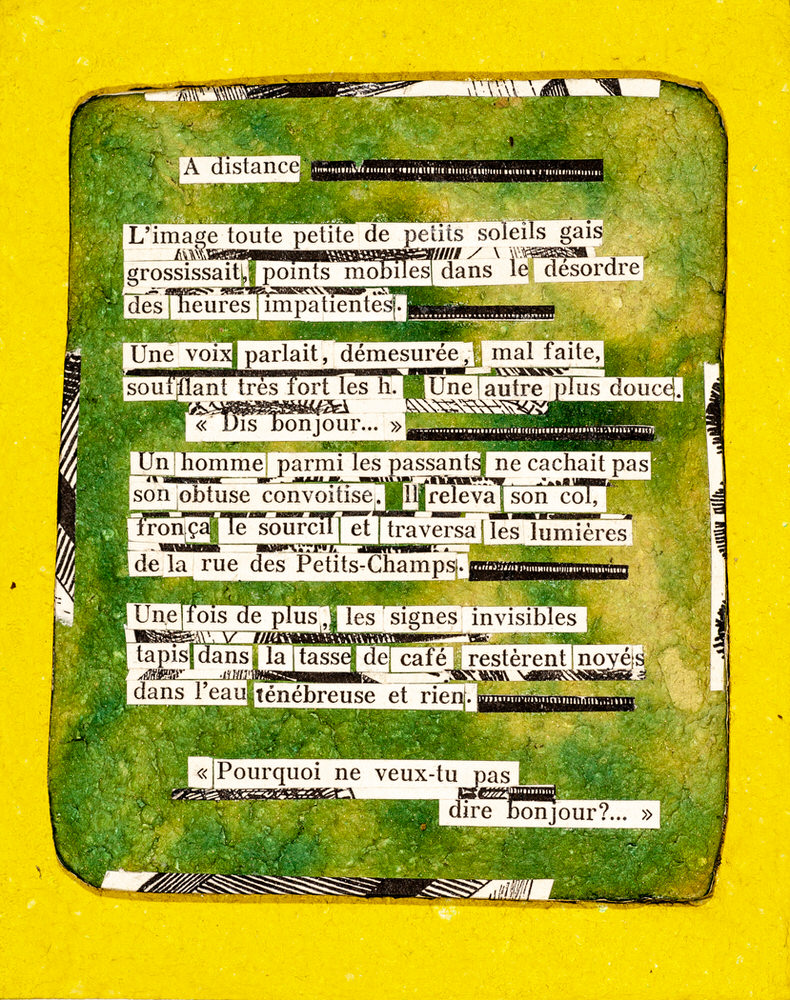 A distance
L'image toute petite de petits soleils gais
grossissait, points mobiles dans le désordre
des heures impatientes.
Une voix parlait, démesurée, mal faite,
soufflant très fort les h. Une autre plus douce.
« Dis bonjour... »
Un homme parmi les passants ne cachait pas
son obtuse convoitise. Il releva son col,
fronça le sourcil et traversa les lumières
de la rue des Petits-Champs.
Une fois de plus, les signes invisibles
tapis dans la tasse de café restèrent noyés
dans l'eau ténébreuse et rien.
« Pourquoi ne veux-tu pas
dire bonjour?... »